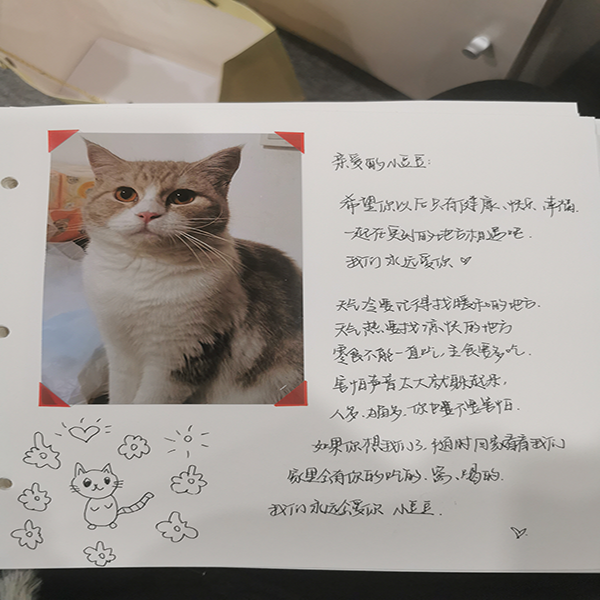 亲爱的小豆豆:
希望你以后只有健康、快乐、幸福.
一起在更好的地方相遇吧.
我们永远爱你
天气冷要记得找暖和的地方.
天气热要找凉快的地方
零食不能一直吃,主食要多吃.
害怕声音太大就躲起来,
人多、猫多、你也要不要害怕.
如果你想我们了,随时回家看看我们
家里会有你的吃的、窝、喝的.
我们永远会爱你 小豆豆.